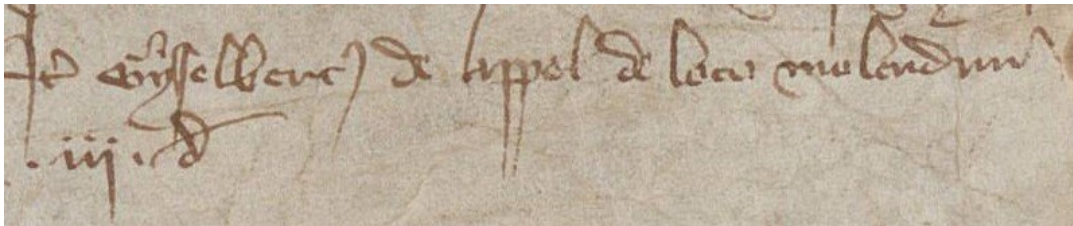 It Gyselbert de Appel de loco molendini
.iij. d